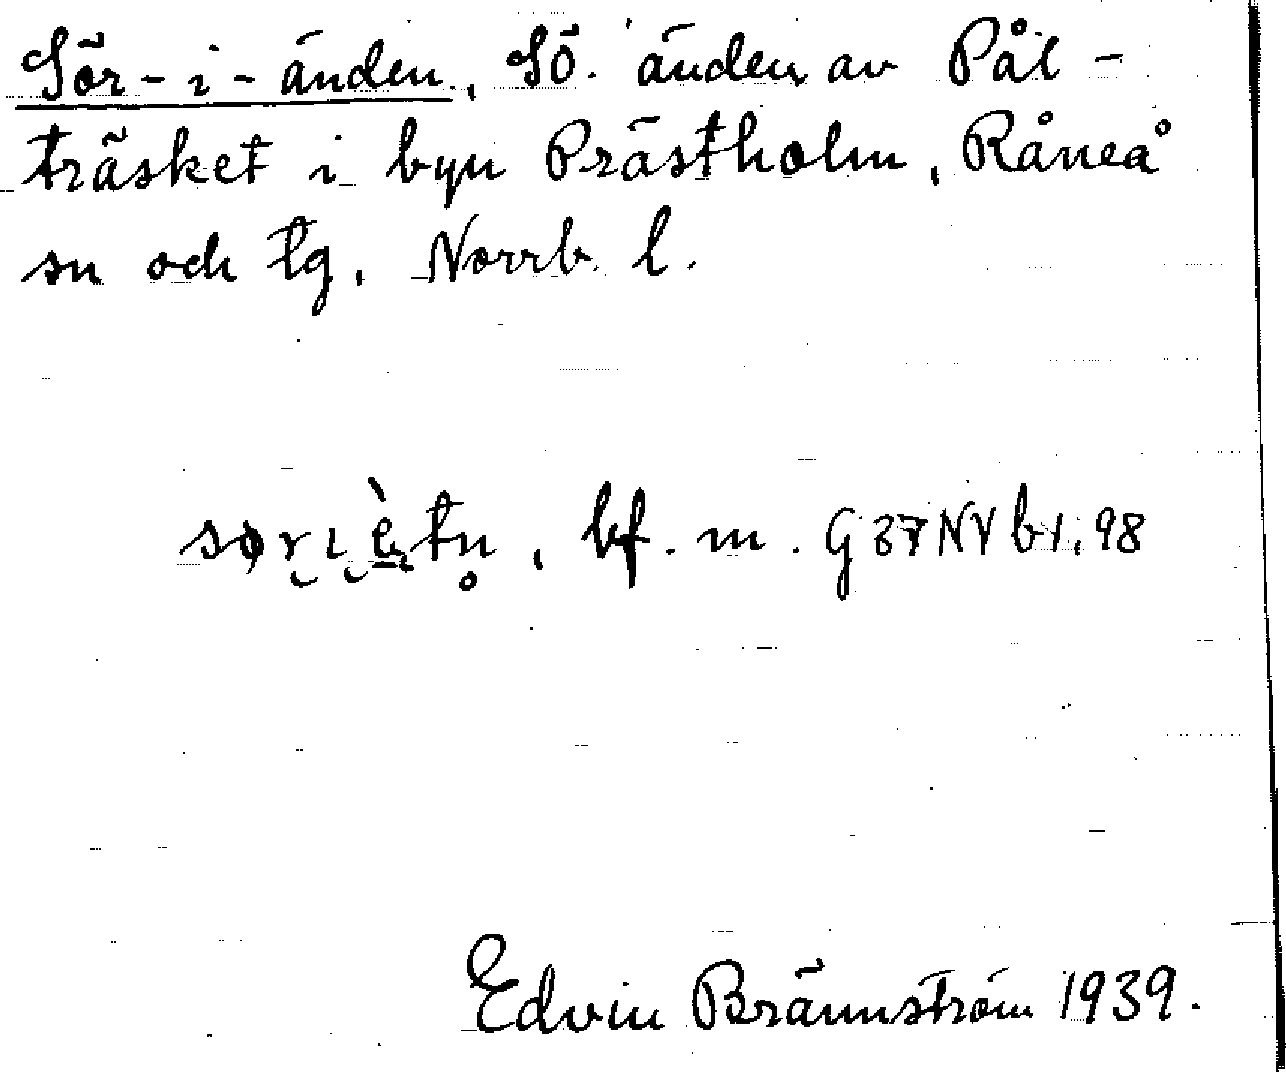 Sör-i-änden, SÖ. änden av Pål-
träsket i byn Prästholm, Råneå
sn och tg, Norrb. l.
bf. m. G 37 NV b1, 98
Edvin Brännström 1939.